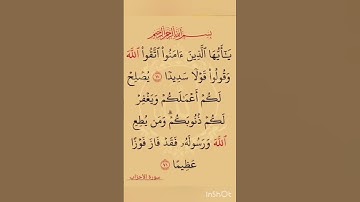 بسم الله الرحمن الرحيم
يَٰٓأَيُّهَا ٱلَّذِينَ ءَامَنُوا۟ ٱتَّقُوا۟ ٱللَّهَ
وَقُولُوا۟ قَوْلًا سَدِيدًا ۝٧٠ يُصْلِحْ
لَكُمْ أَعْمَٰلَكُمْ وَيَغْفِرْ
لَكُمْ ذُنُوبَكُمْ ۗ وَمَن يُطِعِ
ٱللَّهَ وَرَسُولَهُۥ فَقَدْ فَازَ فَوْزًا
عَظِيمًا ۝٧١
سورة الأحزاب
InShOt